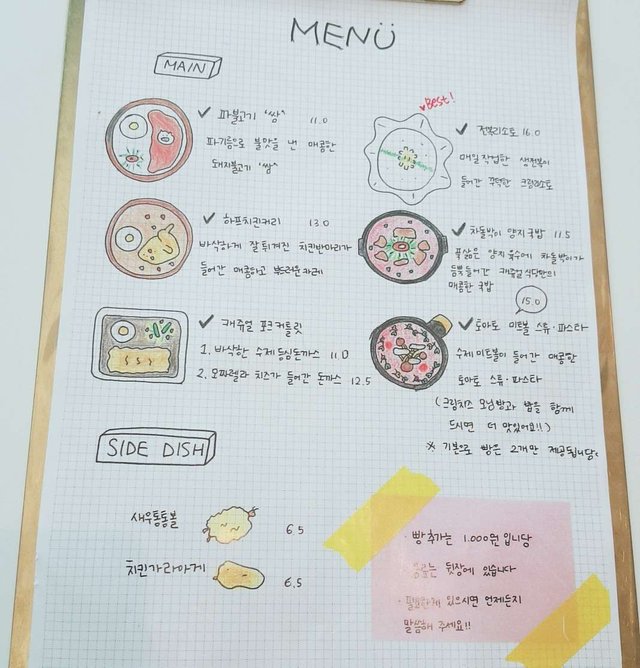 MENÜ
MAIN
✓ 파불고기 "쌈" 11.0
파기름으로 불맛을 낸 매콤한
돼지불고기 "쌈"
✓ 하프치킨커리 13.0
바삭하게 잘 튀겨진 치킨반마리가
들어간 매콤하고 부드러운 카레
✓ 캐쥬얼 포크커틀릿
1. 바삭한 수제 등심돈까스 11.0
2. 모짜렐라 치즈가 들어간 돈까스 12.5
♥Best!
✓ 전복리소토 16.0
매일 작업한 생전복이
들어간 꾸덕한 크림리소토
✓ 차돌박이 양지국밥 11.5
푹 삶은 양지 육수에 차돌박이가
듬뿍 들어간 캐쥬얼식당만의
매콤한 국밥
15.0
✓ 토마토 미트볼 스튜·파스타
수제 미트볼이 들어간 매콤한
토마토 스튜·파스타
(크림치즈 모닝빵과 밥을 함께
드시면 더 맛있어요!!)
※ 기본으로 빵은 2개만 제공됩니당
SIDE DISH
새우통통볼 6.5
치킨가라아게 6.5
· 빵 추가는 1.000원 입니당
음료는 뒷장에 있습니다
· 필요한게 있으시면 언제든지
말씀해 주세요!!